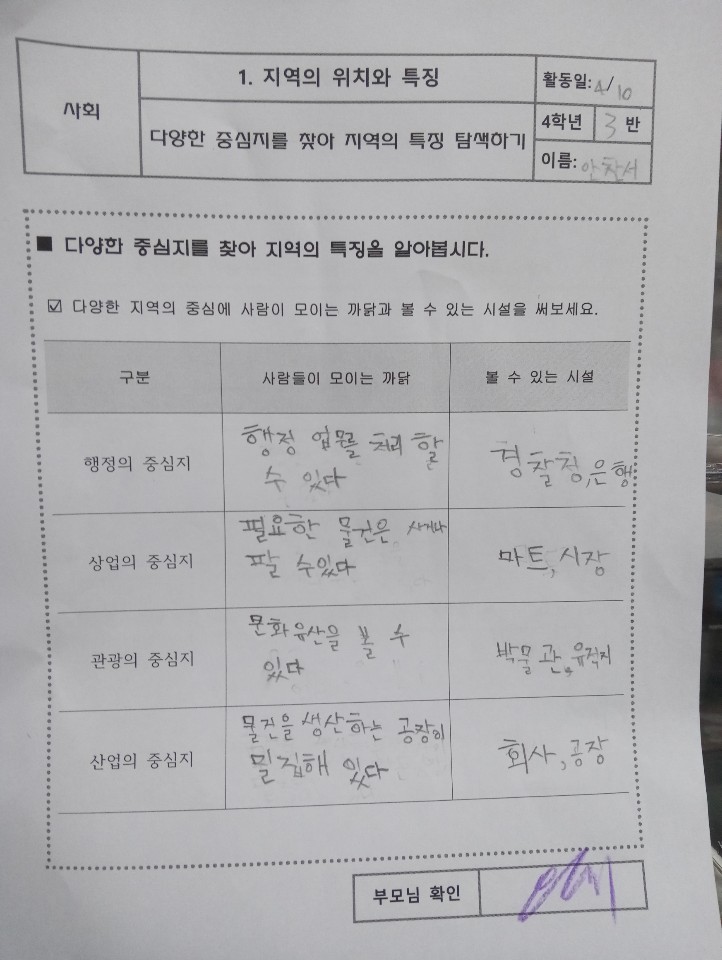 사회
1. 지역의 위치와 특징
다양한 중심지를 찾아 지역의 특징 탐색하기
활동일: 4/10
4학년 3 반
이름: 안찬서
■ 다양한 중심지를 찾아 지역의 특징을 알아봅시다.
☑ 다양한 지역의 중심에 사람이 모이는 까닭과 볼 수 있는 시설을 써보세요.
구분 사람들이 모이는 까닭 볼 수 있는 시설
행정의 중심지
행정 업무를 처리 할
수 있다
경찰청, 은행
상업의 중심지
필요한 물건은 사거나
팔 수있다
마트, 시장
관광의 중심지
문화유산을 볼 수
있다
박물관, 유적지
산업의 중심지
물건을 생산하는 공장이
밀집해 있다
회사, 공장
부모님 확인